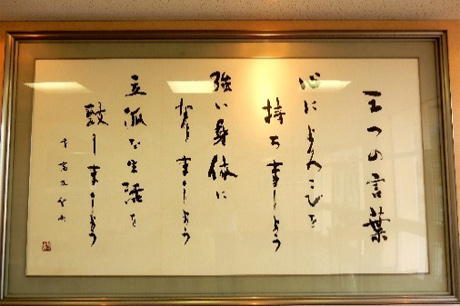 三つの言葉
心によろこびを
持ちましょう
強い身体に
なりましょう
立派な生活を
致しましょう